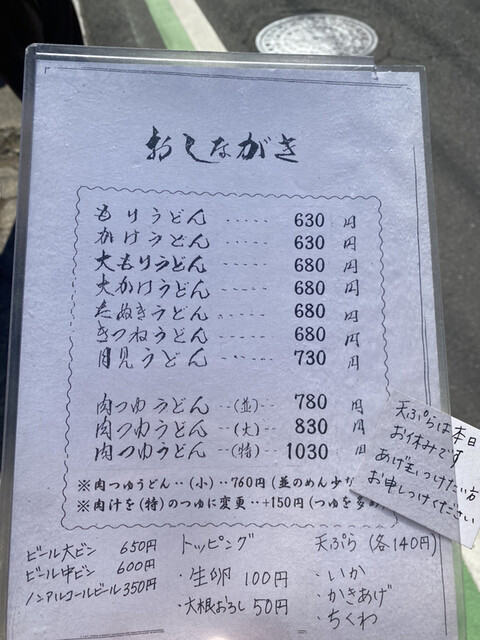 おしながき
もりうどん ‥‥‥ 630 円
かけうどん ‥‥‥ 630 円
大もりうどん ‥‥ 680 円
大かけうどん ‥‥ 680 円
たぬきうどん ‥‥ 680 円
きつねうどん ‥‥ 680 円
月見うどん ‥‥‥ 730 円
肉つゆうどん‥(並)‥ 780 円
肉つゆうどん‥(大)‥ 830 円
肉つゆうどん‥(特)‥ 1030 円
※肉つゆうどん‥(小)‥760円(並のめん少な
※肉汁を(特)のつゆに変更‥+150円(つゆを多め
天ぷらは本日
お休みです
あげ玉つけたい方
お申しつけください
ビール大ビン 650円
ビール中ビン 600円
ノンアルコールビール 350円
トッピング
・生卵 100円
・大根おろし 50円
天ぷら(各140円)
・いか
・かきあげ
・ちくわ